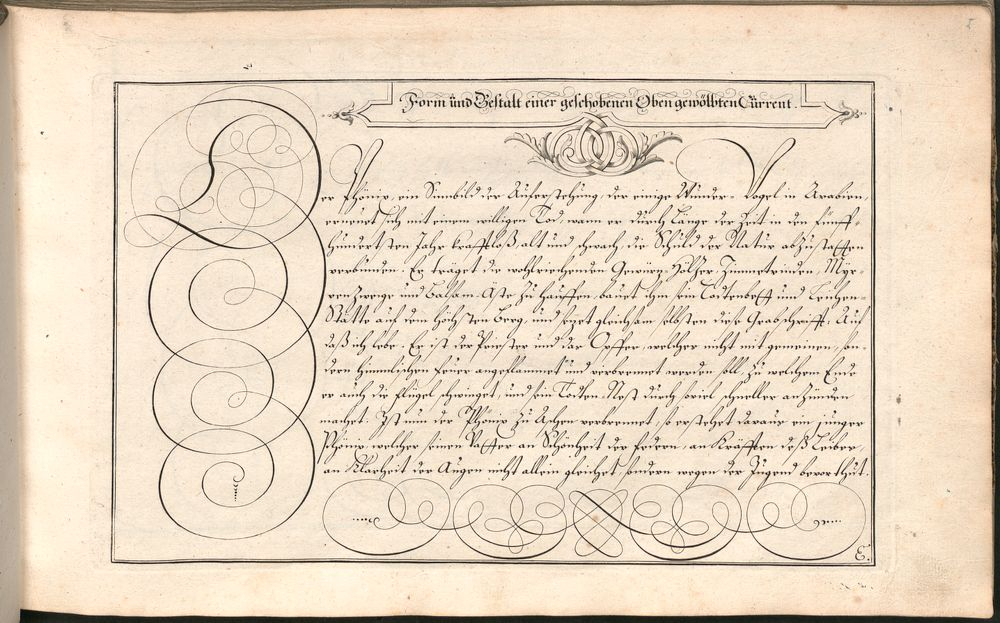 Form und Gestalt einer geschobenen Oben gewölbten Current.
Der Phönix, ein Sinnbild der Auferstehung, der einige Wunder-Vogel in Arabien,
erneuret sich mit einem willigen Tod, wann er durch Länge der Zeit in den fünff-
hundertsten Jahr krafftloß, alt und schwach, die Schuld der Natur abzustatten
verbunden. Er träget die wohlriechenden Gewürtz-Höltzer, Zimmetrinden, Myr-
ren zweige und Balsam-Äste zu hauffen, bauet ihm sein Todtenbett und Leichen-
Statte auf dem höchsten Berg, und setzet gleichsam selbsten diese Grabschrifft: Auf
daß ich lebe. Er ist der Priester und das Opffer, welches nicht mit gemeinen, son-
dern himmlischen Feuer angeflammet und verbrennet werden soll, zu welchem Ende
er auch die Flügel schwinget, und sein Todten-Nest durch soviel schneller anzünden
machet. Ist nun der Phönix zu Aschen verbrennet, so erstehet daraus ein junger
Phönix, welcher seinen Vatter an Schönheit der Federn, an Kräfften deß Leibes,
an Klarheit der Augen nicht allein gleichet, sondern wegen der Jugend bevorthut.
E.